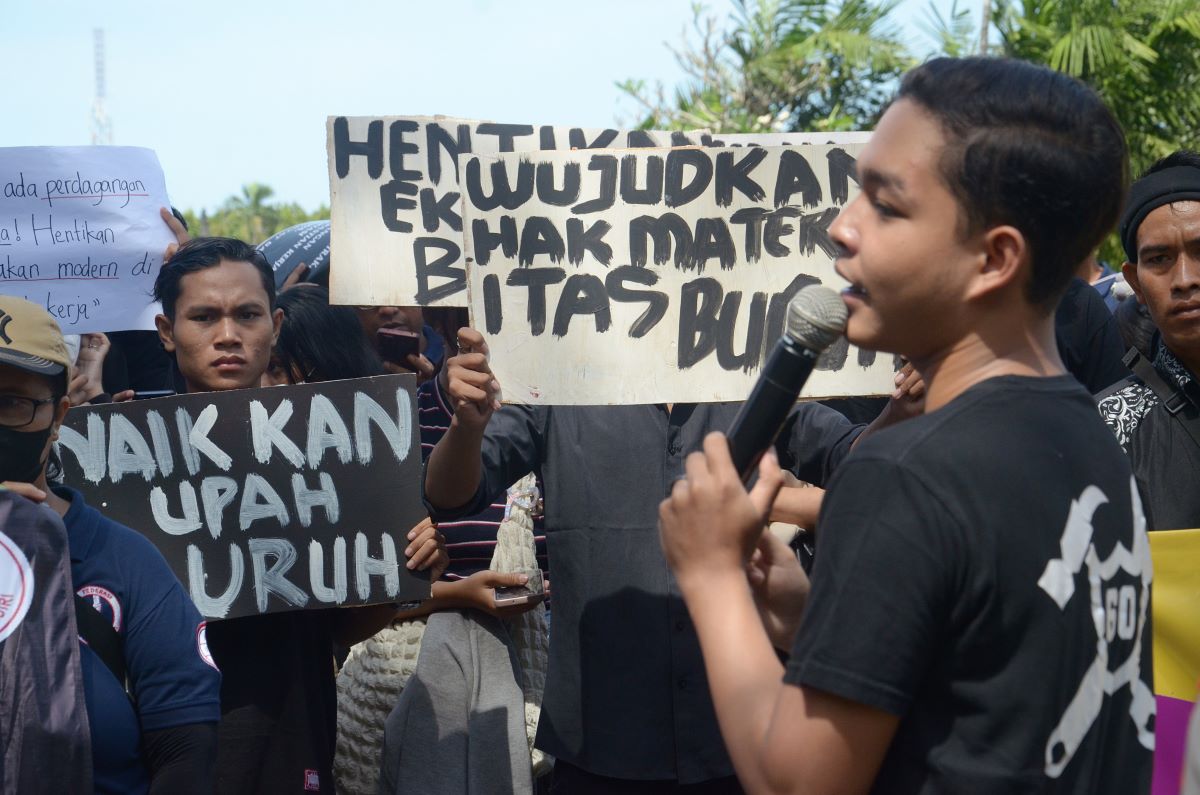 ada perdagangan
! Hentikan
akan modern di
kerja"
HENTIKAN
EK
B
WUJUDKAN
HAK MATER
ITAS BU
NAIK KAN
UPAH
URUH
FEDERASI
60